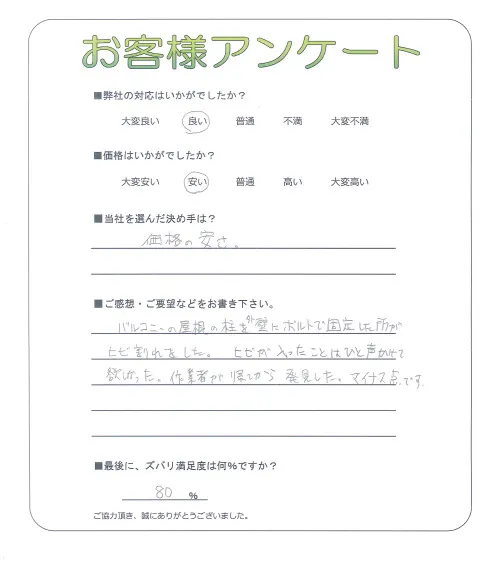 お客様アンケート
■弊社の対応はいかがでしたか？
大変良い 良い 普通 不満 大変不満
■価格はいかがでしたか？
大変安い 安い 普通 高い 大変高い
■当社を選んだ決め手は？
価格の安さ。
■ご感想・ご要望などをお書き下さい。
バルコニーの屋根の柱を外壁にボルトで固定した所が
ヒビ割れをました。ヒビが入ったことはひと声かせて
欲しかった。作業者が帰てから発見した。マイナス点です。
■最後に、ズバリ満足度は何％ですか？
80 %
ご協力頂き、誠にありがとうございました。